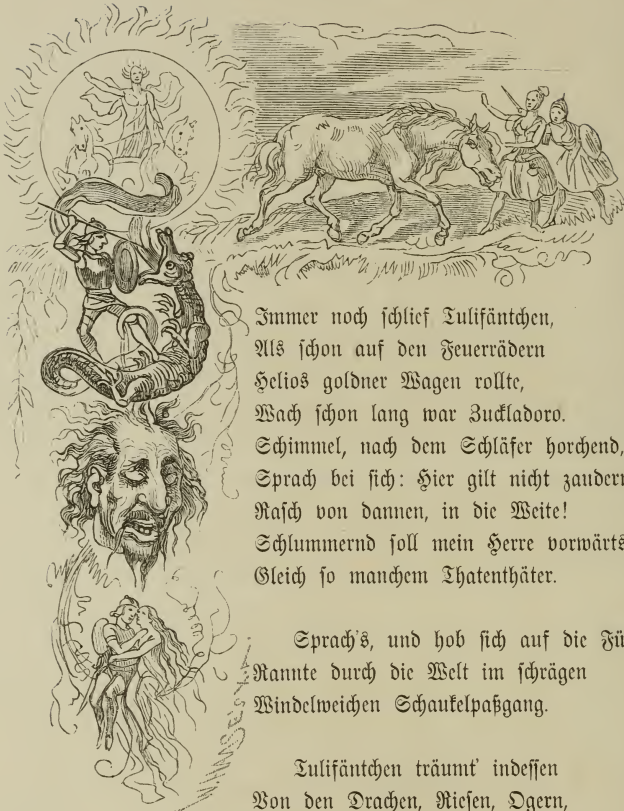 Immer noch schlief Tulifäntchen,
Als schon auf den Feuerrädern
Helios goldner Wagen rollte,
Wach schon lang war Zuckladoro.
Schimmel, nach dem Schläfer horchend,
Sprach bei sich: Hier gilt nicht zaudern
Rasch von dannen, in die Weite!
Schlummernd soll mein Herre vorwärts
Gleich so manchem Thatenthäter.
Sprach's, und hob sich auf die Fü
Rannte durch die Welt im schrägen
Windelweichen Schaukelpaßgang.
Tulifäntchen träumt' indessen
Von den Drachen, Riesen, Ogern,